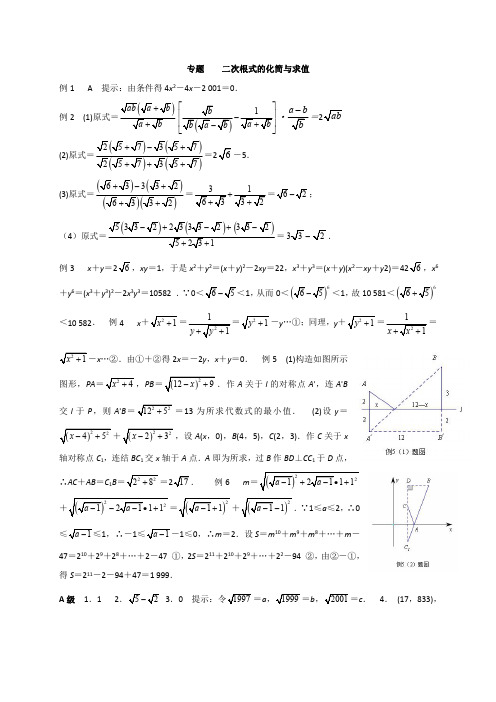 专题 二次根式的化简与求值
例1 A 提示:由条件得4x²-4x-2 001=0.
例2 (1)原式=\frac{\sqrt{ab}(\sqrt{a}+\sqrt{b})}{\sqrt{a}+\sqrt{b}}[\frac{\sqrt{b}}{\sqrt{b}(\sqrt{a}-\sqrt{b})}-\frac{1}{\sqrt{a}+\sqrt{b}}]·\frac{a-b}{\sqrt{b}}=2\sqrt{ab}
(2)原式=\frac{\sqrt{2}(\sqrt{5}+\sqrt{7})-\sqrt{3}(\sqrt{5}+\sqrt{7})}{\sqrt{2}(\sqrt{5}+\sqrt{7})+\sqrt{3}(\sqrt{5}+\sqrt{7})}=2\sqrt{6}-5.
(3)原式=\frac{(\sqrt{6}+\sqrt{3})-3(\sqrt{3}+\sqrt{2})}{(\sqrt{6}+\sqrt{3})(\sqrt{3}+\sqrt{2})}=\frac{3}{\sqrt{6}+\sqrt{3}}+\frac{1}{\sqrt{3}+\sqrt{2}}=\sqrt{6}-\sqrt{2};
例3 x+y=2\sqrt{6},xy=1,于是x²+y²=(x+y)²-2xy=22,x³+y³=(x+y)(x²-xy+y2)=42\sqrt{6},x⁶
+y⁶=(x³+y³)²-2x³y³=10582 .∵0<\sqrt{6}-\sqrt{5}<1,从而0<(\sqrt{6}-\sqrt{5})⁶<1,故10 581<(\sqrt{6}+\sqrt{5})⁶
<10 582. 例4 x+\sqrt{x²+1}=\frac{1}{y+\sqrt{y²+1}}=\sqrt{y²+1}-y…①;同理,y+\sqrt{y²+1}=\frac{1}{x+\sqrt{x²+1}}=
\sqrt{x²+1}-x…②.由①+②得2x=-2y,x+y=0. 例5 (1)构造如图所示
图形,PA=\sqrt{x²+4},PB=\sqrt{(12-x)²+9}.作A关于l的对称点A',连A'B
交l于P,则A'B=\sqrt{12²+5²}=13为所求代数式的最小值. (2)设y=
\sqrt{(x-4)²+5²}+\sqrt{(x-2)²+3²},设A(x,0),B(4,5),C(2,3).作C关于x
轴对称点C₁,连结BC₁交x轴于A点.A即为所求,过B作BD⊥CC₁于D点,
∴AC+AB=C₁B=\sqrt{2²+8²}=2\sqrt{17}. 例6 m=\sqrt{(\sqrt{a-1})²+2\sqrt{a-1}•1+1²}
+\sqrt{(\sqrt{a-1})²-2\sqrt{a-1}•1+1²}=\sqrt{(\sqrt{a-1}+1)²}+\sqrt{(\sqrt{a-1}-1)²}.∵1≤a≤2,∴0
≤\sqrt{a-1}≤1,∴-1≤\sqrt{a-1}-1≤0,∴m=2.设S=m¹⁰+m⁹+m⁸+…+m-
47=2¹⁰+2⁹+2⁸+…+2-47 ①,2S=2¹¹+2¹⁰+2⁹+…+2²-94 ②,由②-①,
得S=2¹¹-2-94+47=1 999.
A级 1.1 2.\sqrt{5}-\sqrt{2} 3.0 提示:令\sqrt{1997}=a,\sqrt{1999}=b,\sqrt{2001}=c. 4. (17,833),
B
A
3
2
x
l
2
12—x
2
A'
12
B'
例5(1)题图
y
D
B
C
A
x
C₁
例5(2)题图